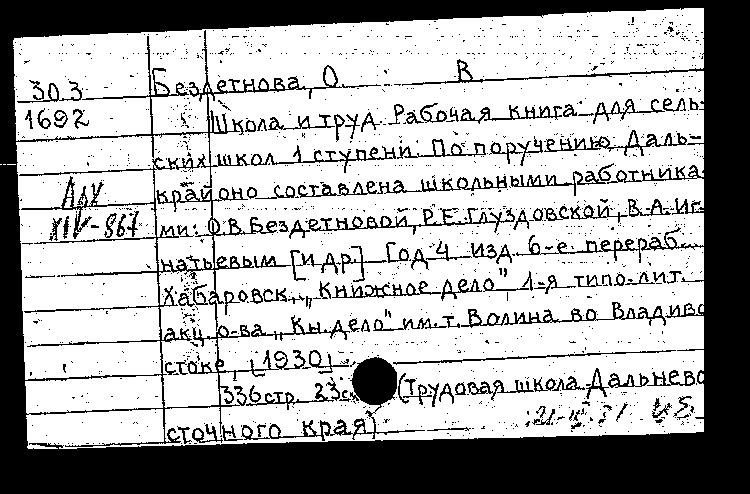 30.3 Бездетнова, О. В.
1692 Школа и труд. Рабочая книга для сель-
ских школ 1 ступени. По поручению Даль-
крайоно составлена школьными работника-
XIV-867 ми: О.В.Бездетновой, Р.Е.Глуздовской, В.А.Иг-
натьевым [и др.] Год 4 изд. 6-е перераб.
Хабаровск, „Книжное дело", 1-я типо-лит.
акц. о-ва „Кн.дело" им. т. Волина во Владиво
стоке, [1930]
336 стр. 23с (Трудовая школа Дальнево
сточного края)